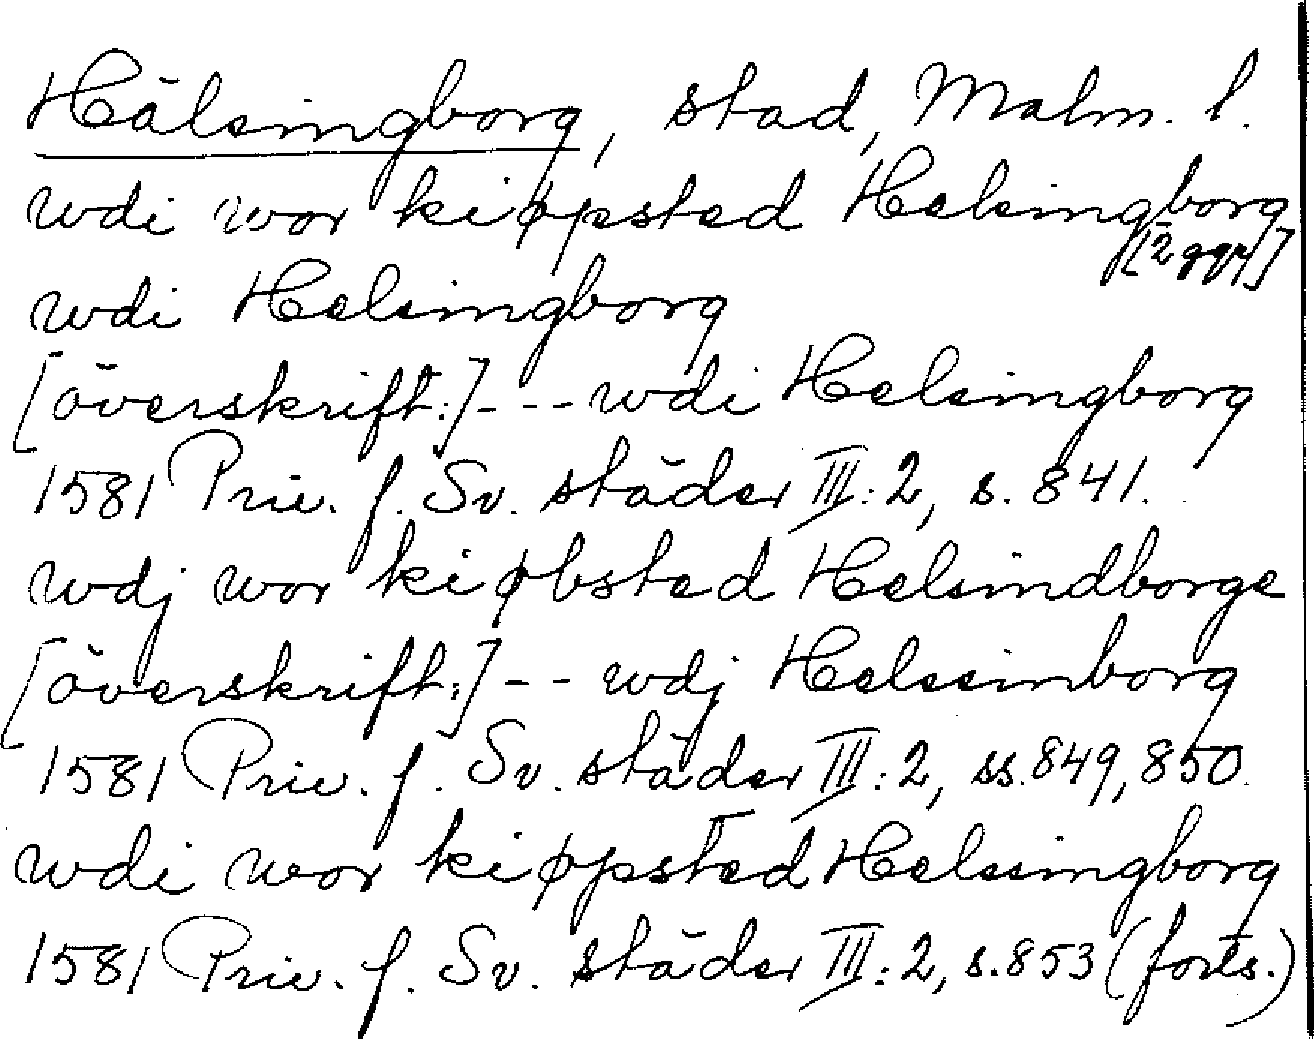 Hälsingborg, stad, Malm. l.
wdi wor kiøpsted Helsingborg
[2 ggr]
wdi Helsingborg
[överskrift:]--- wdi Helsingborg
1581 Priv. f. Sv. städer III:2, s. 841.
wdj wor kiøbsted Helsindborge
[överskrift:]-- wdj Helssinborg
1581 Priv. f. Sv. städer III:2, ss. 849, 850.
wdi wor kiøpsted Helssingborg
1581 Priv. f. Sv. städer III:2, s. 853 (forts.)